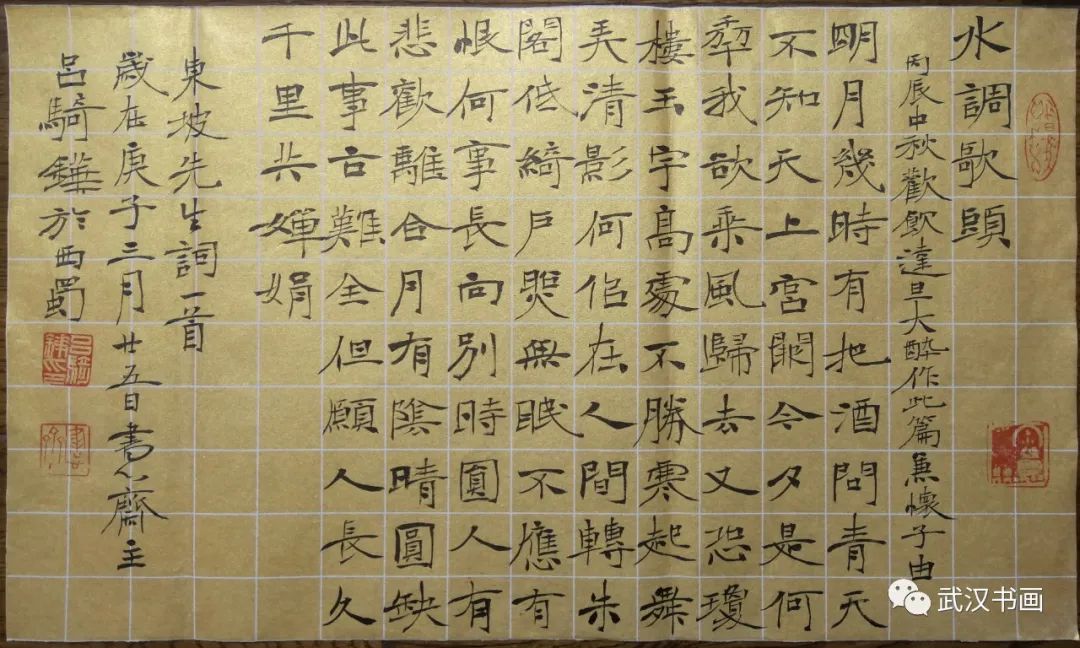 水調歌頭
丙辰中秋歡飲達旦大醉作此篇兼懷子由
明月幾時有把酒問青天
不知天上宮闕今夕是何
年我欲乘風歸去又恐瓊
樓玉宇高處不勝寒起舞
弄清影何似在人間轉朱
閣低綺戶照無眠不應有
恨何事長向別時圓人有
悲歡離合月有陰晴圓缺
此事古難全但願人長久
千里共嬋娟
東坡先生詞一首
歲在庚子三月廿五日書齋主
呂騎鏵於西蜀
武汉书画